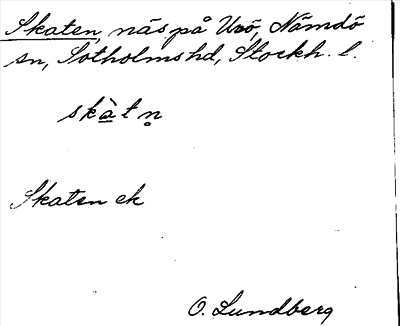 Skaten, näs på Uvö, Nämdö
sn, Sotholms hd, Stockh. l.
skàtn̥
Skaten ek
O. Lundberg